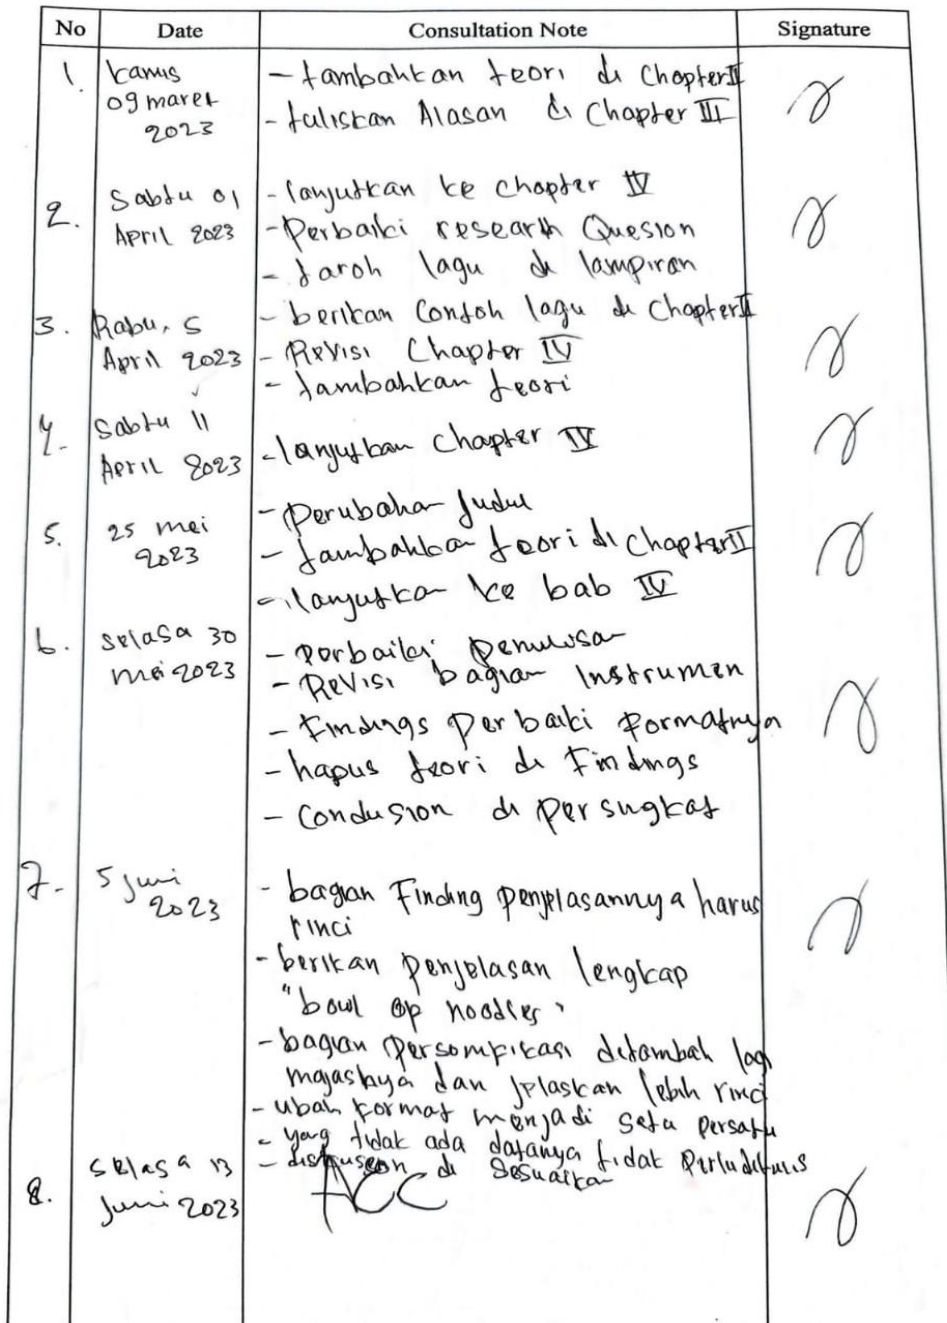 No Date Consultation Note Signature
1. kamis - tambahkan teori di Chapter II
09 maret - tuliskan Alasan di Chapter III
2023
2. Sabtu 01 - lanjutkan ke chapter IV
April 2023 - Perbaiki research Quesion
- taroh lagu di lampiran
3. Rabu, 5 - berikan Contoh lagu di Chapter II
April 2023 - Revisi Chapter IV
- tambahkan teori
4. Sabtu 11
April 2023 - lanjutkan chapter IV
- Perubahan Judul
5. 25 mei - tambahkan teori di Chapter II
2023
- lanjutkan ke bab IV
6. Selasa 30 - perbaiki penulisan
mei 2023 - Revisi bagian Instrumen
- Findings perbaiki formatnya
- hapus teori di Findings
- Conclusion di persingkat
7. 5 Juni - bagian Finding penjelasannya harus
2023 rinci
- berikan penjelasan lengkap
"bowl of noodles"
- bagian personifikasi ditambah lagi
majasnya dan jelaskan lebih rinci
- ubah format menjadi satu persatu
- yang tidak ada datanya tidak perlu ditulis
- di sesuaikan
8. Selasa 13 ACC
Juni 2023